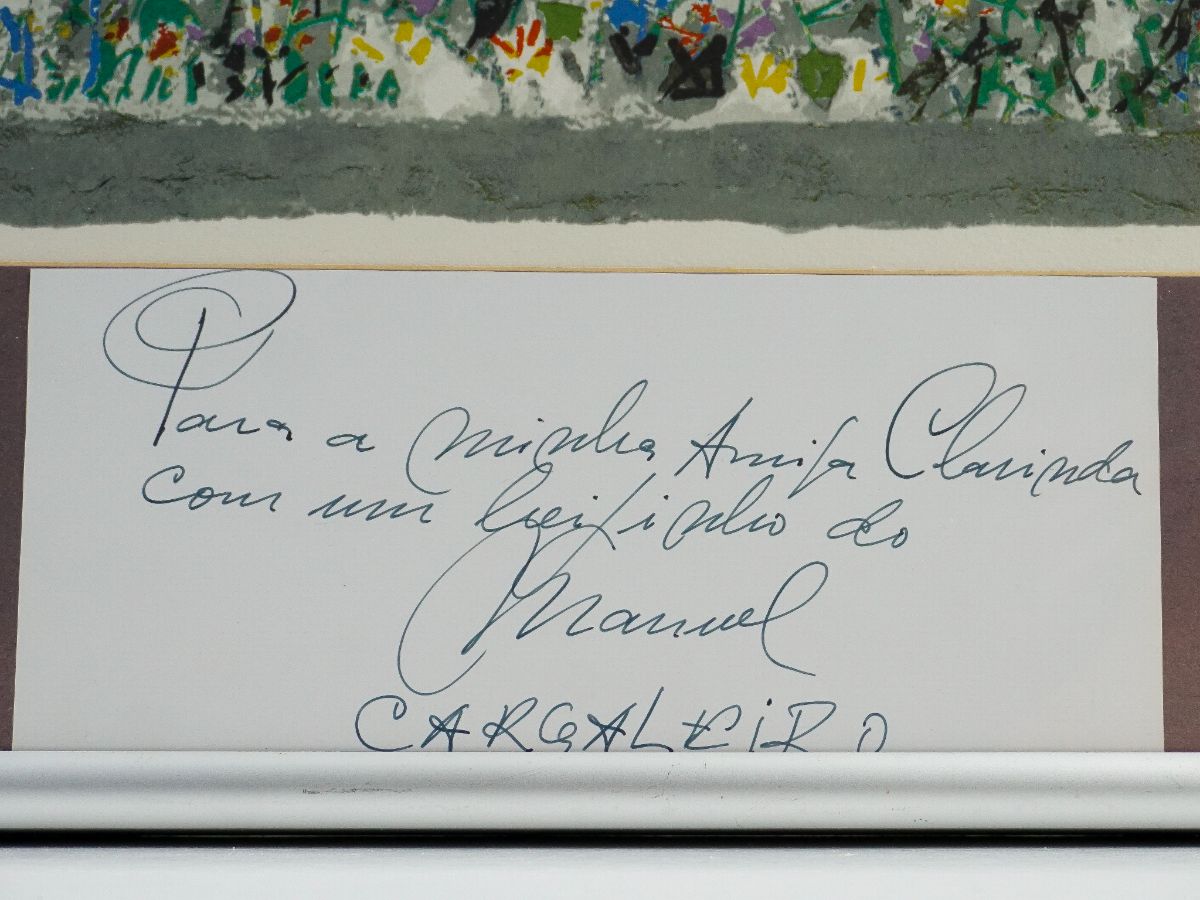 Para a minha Amiga Clarinda
com um beijinho do
Manuel
CARGALEIRO